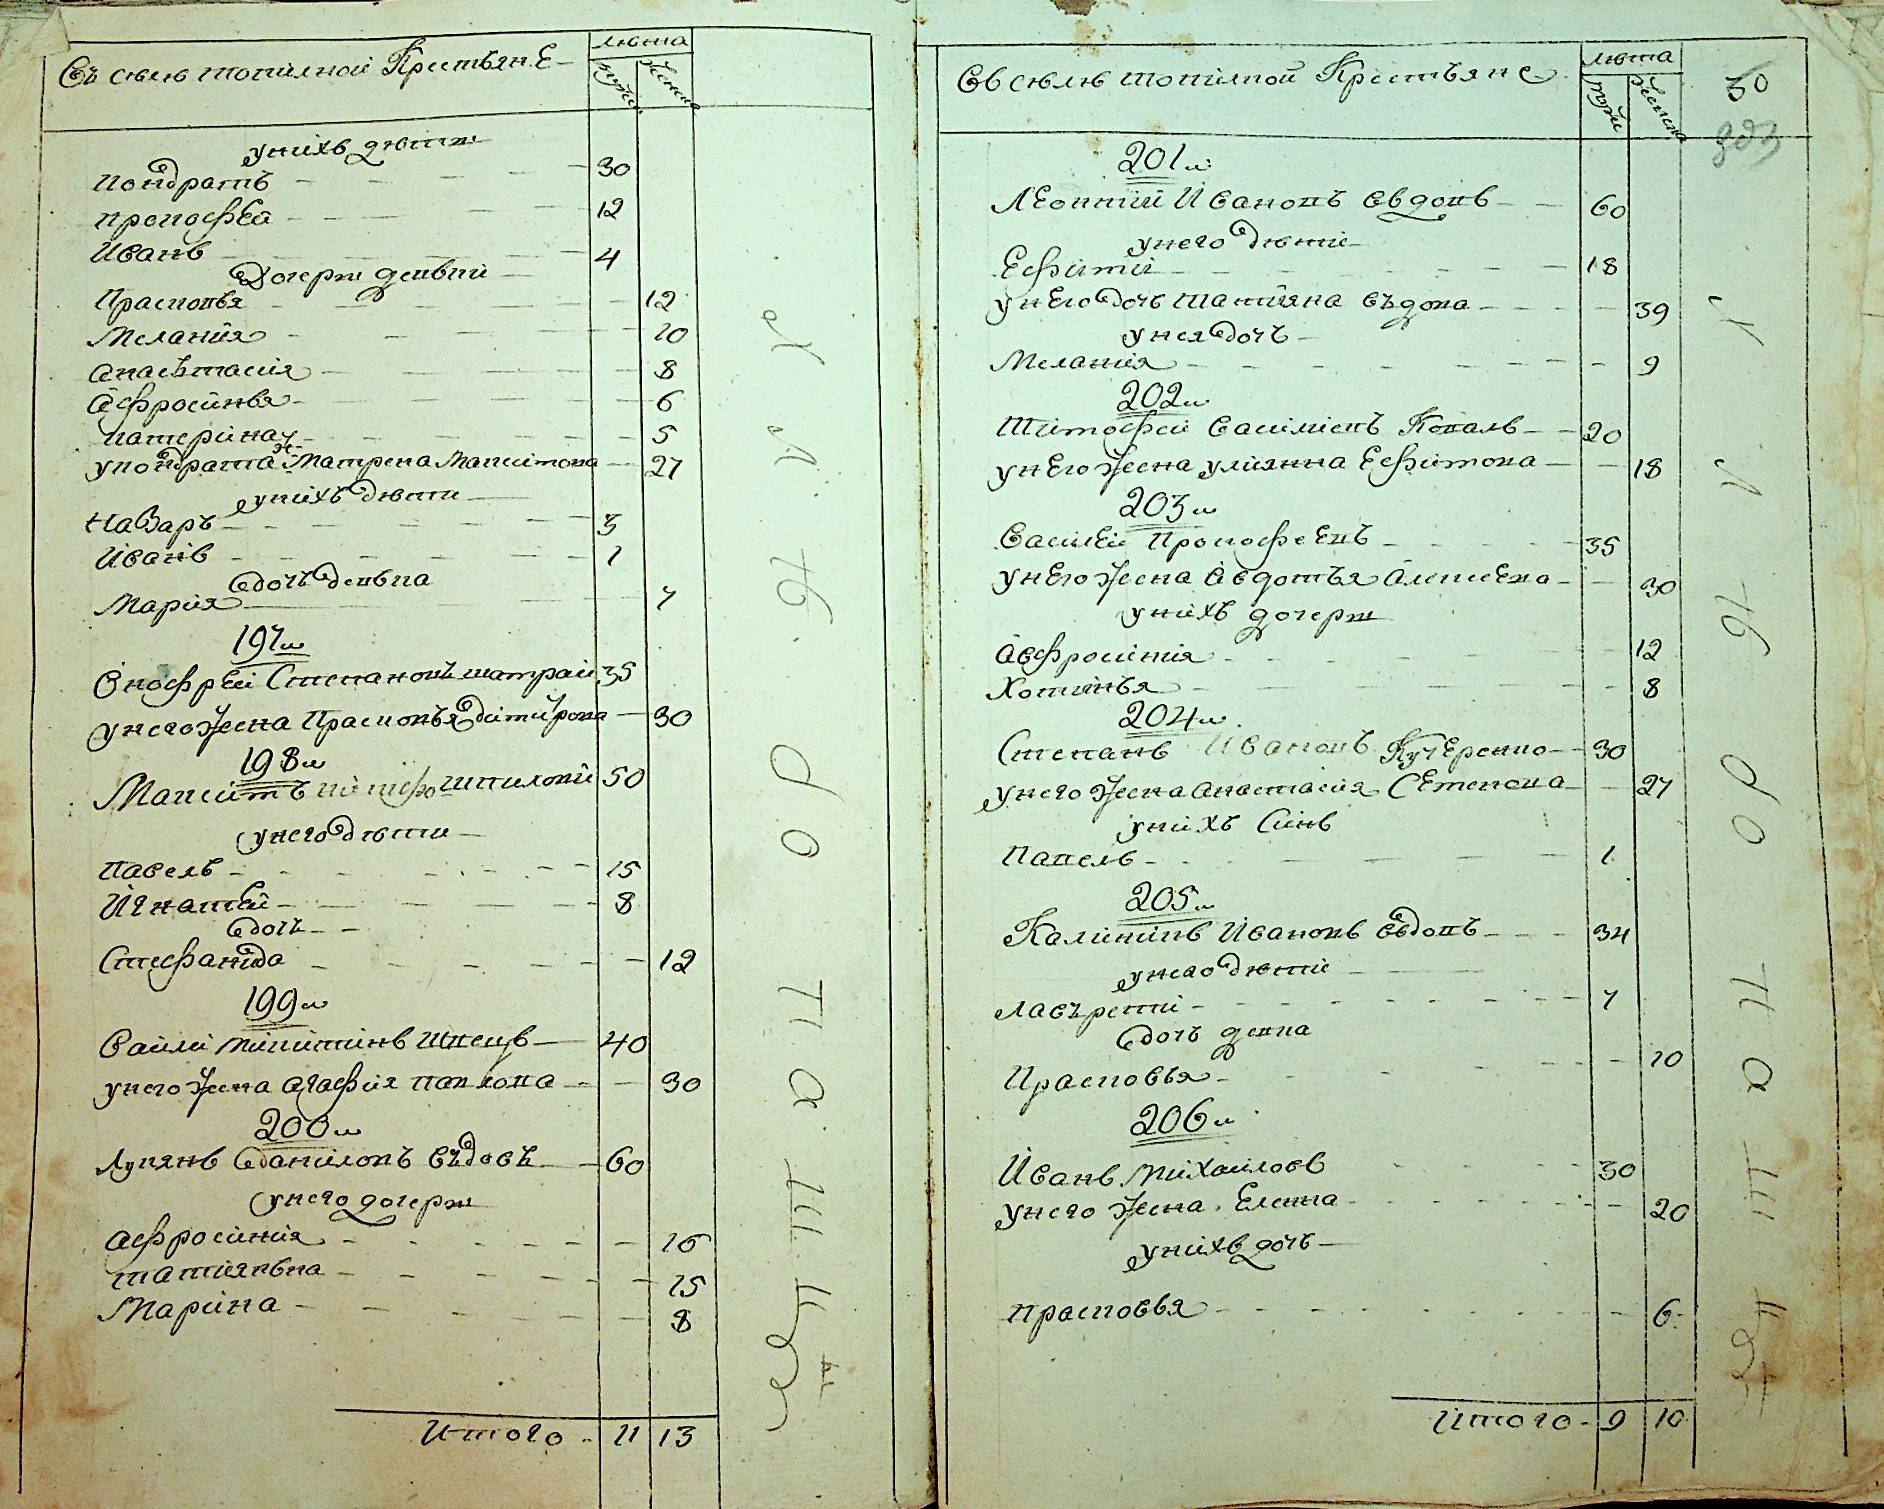 Въ селѣ топилной Крестьяне
лѣта
мужеск
женска
у нихъ дѣти
Кондратъ 30
прокофей 12
Иванъ 4
дочери девки
Прасковья 12
Мелания 10
анасътасия 8
Ефросинья 6
катерина 5
у кондрата ж. Матрена Максимова 27
у нихъ дѣти
Назаръ 3
Иванъ 1
дочь девка
Мария 7
197 и
Онофрей Степановъ 35
у него жена Прасковья дмитрова 30
198 и
Максимъ 50
у него дѣти
Павелъ 15
Игнатей 8
дочь
Стефанида 12
199 и
Василий Никитинъ Швецъ 40
у него жена агафия павлова 30
200 и
Лукянъ даниловъ въдовъ 60
у него дочери
афросиния 16
татиянна 15
Марина 8
Итого 11 13
Въ селѣ топилной Крестьяне
лѣта
мужеск
женска
50
Леонтий Ивановъ вдовъ 60
201 и
у него дѣти
Ефимий 18
у него дочь татияна въдова 39
у нея дочь
Мелания 9
202 и
Тимофей Василиевъ Коваль 20
у него жена улиянна Ефимова 18
203 и
Василей Прокофьевъ 35
у него жена Авдотья Алексеева 30
у нихъ дочери
Авфросиния 12
Хотинья 8
204 и
Степанъ Ивановъ Кучеренко 30
у него жена анастасия Семенова 27
у нихъ Синъ
Павелъ 1
205 и
Калининъ Ивановъ въдовъ 34
у него дѣти
лавърентий 7
дочь девка
Прасковья 10
206 и
Иванъ Михайловъ 30
у него жена Елена 20
у нихъ дочь
прасковья 6
Итого 9 10